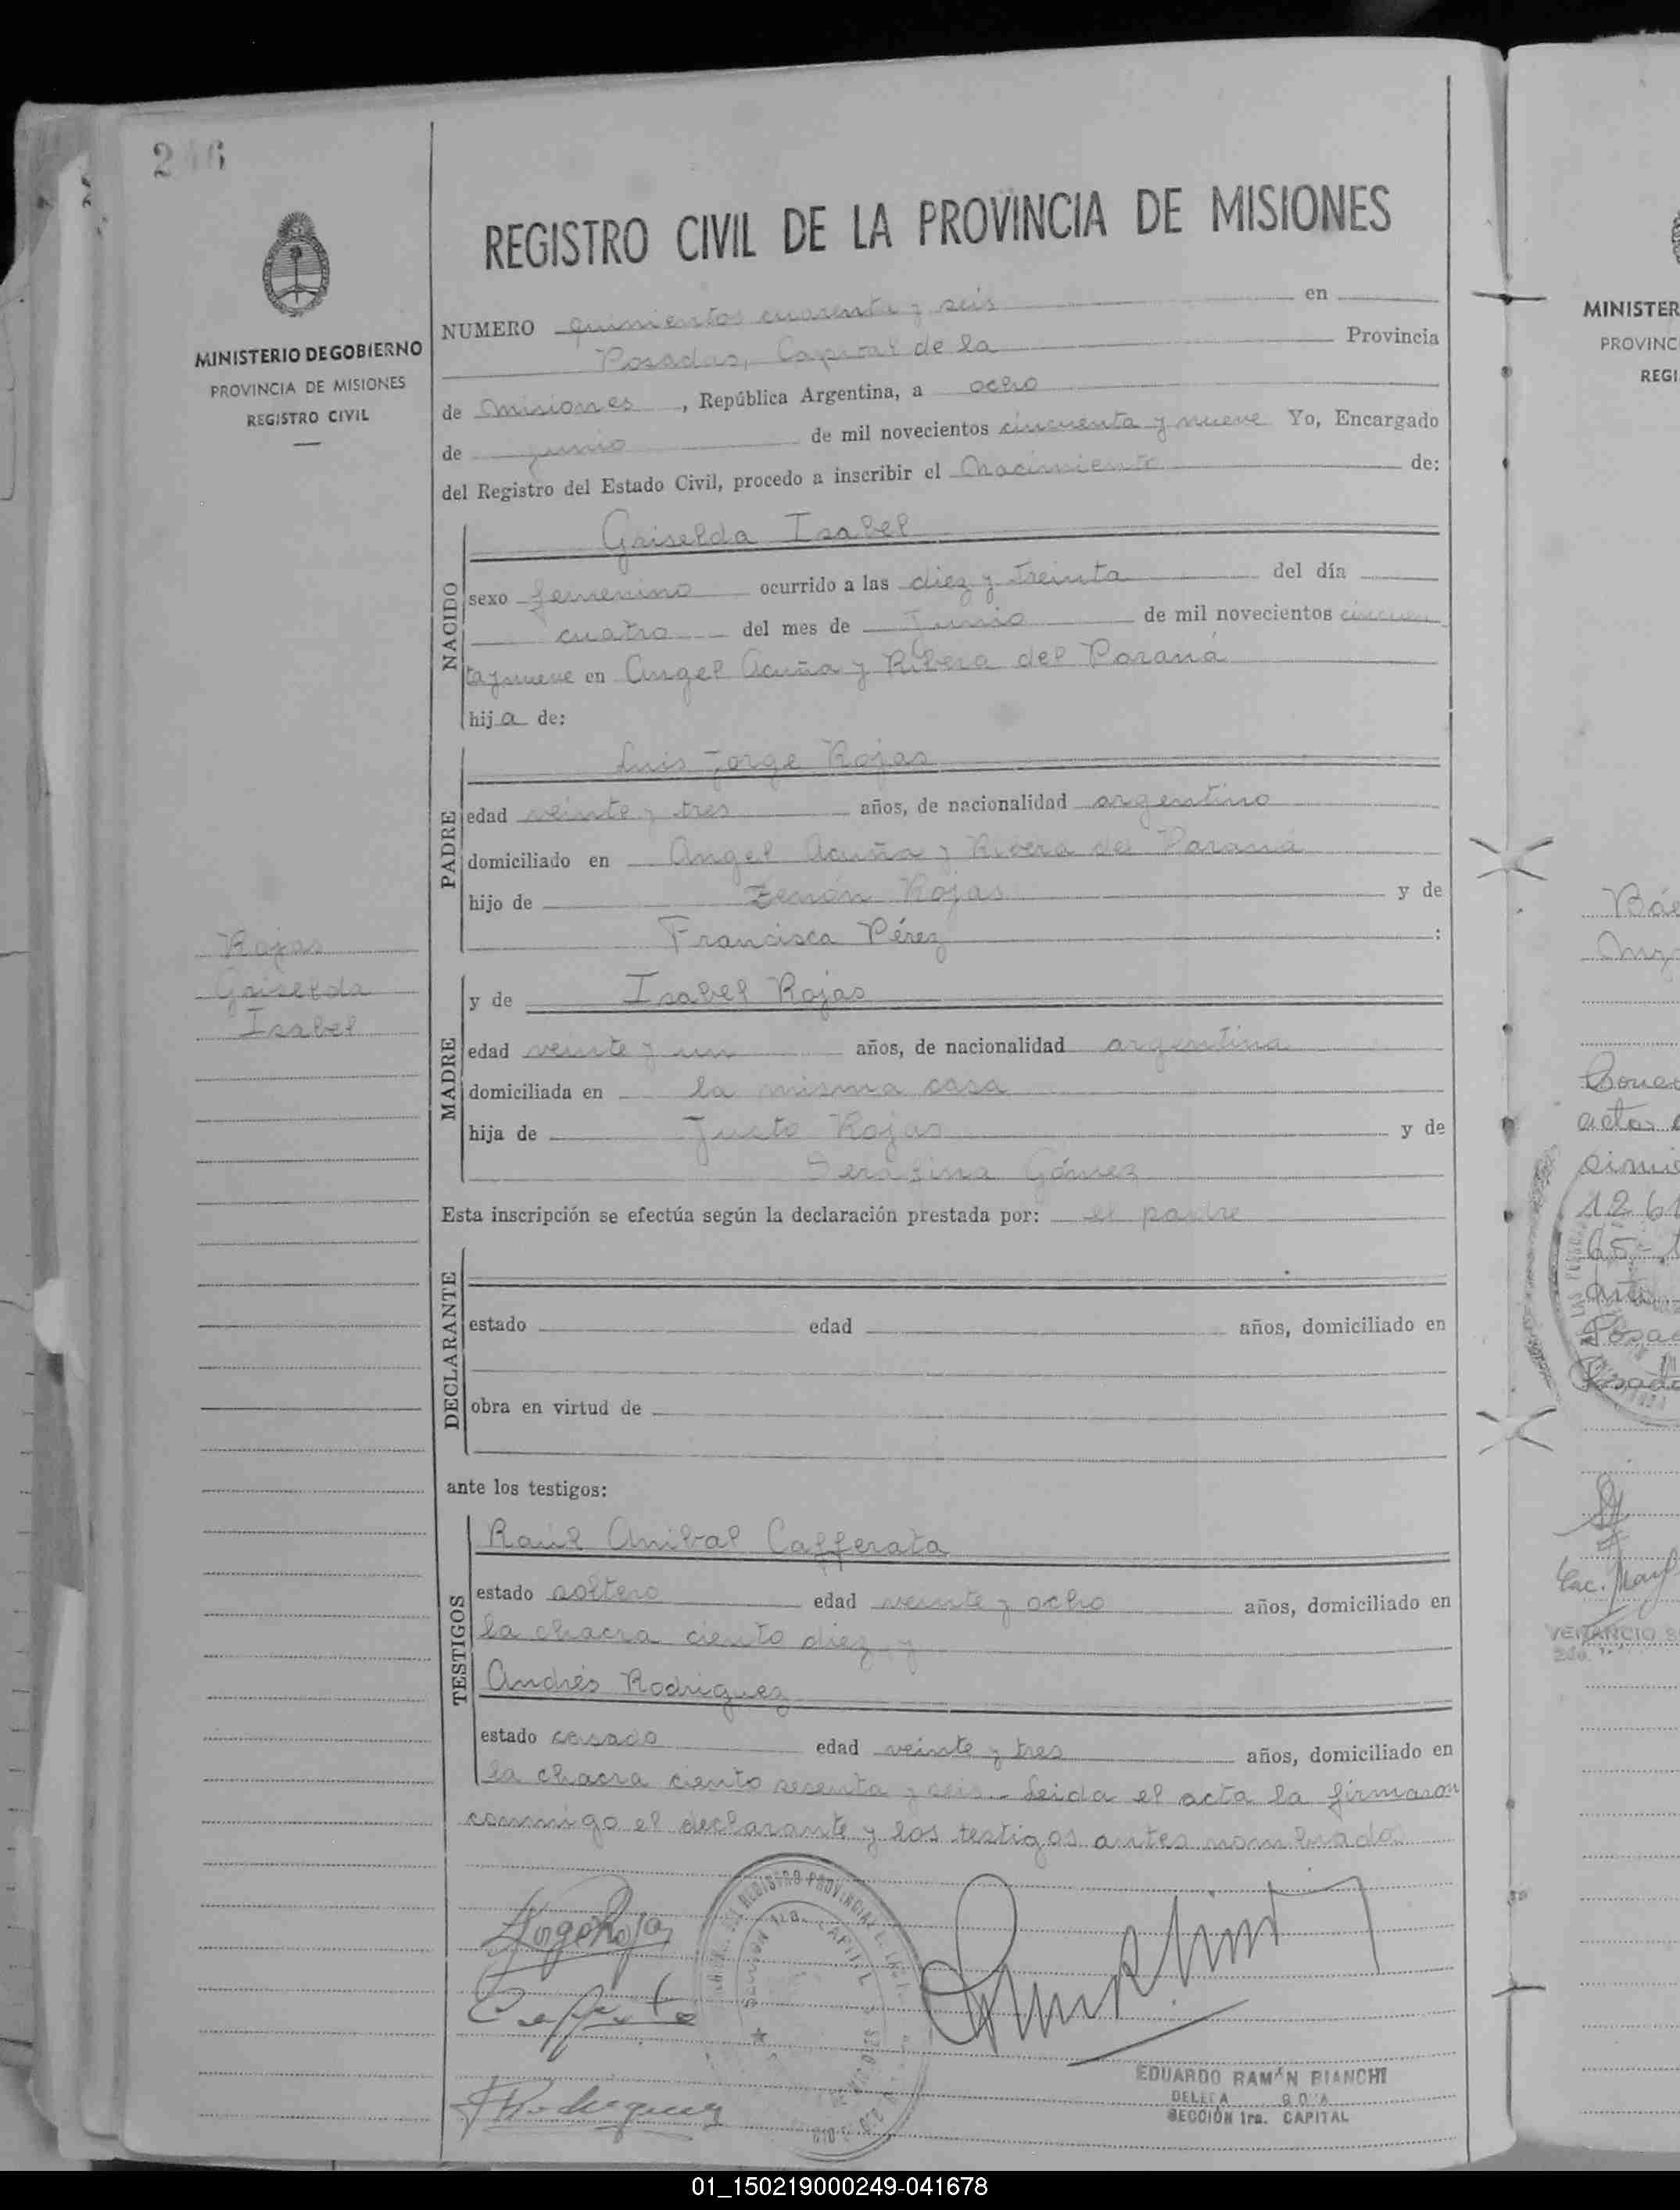 MINISTERIO DE GOBIERNO
PROVINCIA DE MISIONES
REGISTRO CIVIL
Rojas
Griselda
Isabel
REGISTRO CIVIL DE LA PROVINCIA DE MISIONES
NUMERO quinientos cuarenta y seis en
Posadas, Capital de la Provincia
de Misiones, República Argentina, a ocho
de junio de mil novecientos cincuenta y nueve Yo, Encargado
del Registro del Estado Civil, procedo a inscribir el Nacimiento de:
NACIDO
Griselda Isabel
sexo femenino ocurrido a las diez y treinta del día
cuatro del mes de Junio de mil novecientos cincuen
ta y nueve en Angel Acuña y Ribera del Paraná
hija de:
PADRE
Luis Jorge Rojas
edad veinte y tres años, de nacionalidad argentino
domiciliado en Angel Acuña y Ribera del Paraná
hijo de Zenón Rojas y de
Francisca Pérez :
MADRE
y de Isabel Rojas
edad veinte y un años, de nacionalidad argentina
domiciliada en la misma casa
hija de Justo Rojas y de
Serafina Gómez
Esta inscripción se efectúa según la declaración prestada por: el padre
DECLARANTE
estado edad años, domiciliado en
obra en virtud de
ante los testigos:
TESTIGOS
Raúl Anibal Cafferata
estado soltero edad veinte y ocho años, domiciliado en
la chacra ciento diez y
Andrés Rodriguez
estado casado edad veinte y tres años, domiciliado en
la chacra ciento sesenta y seis.- Leida el acta la firmaron
conmigo el declarante y los testigos antes nombrados
EDUARDO RAMÓN BIANCHI
SECCIÓN 1ra. CAPITAL
MINISTER
PROVINC
REGI
Posad
01_150219000249-041678